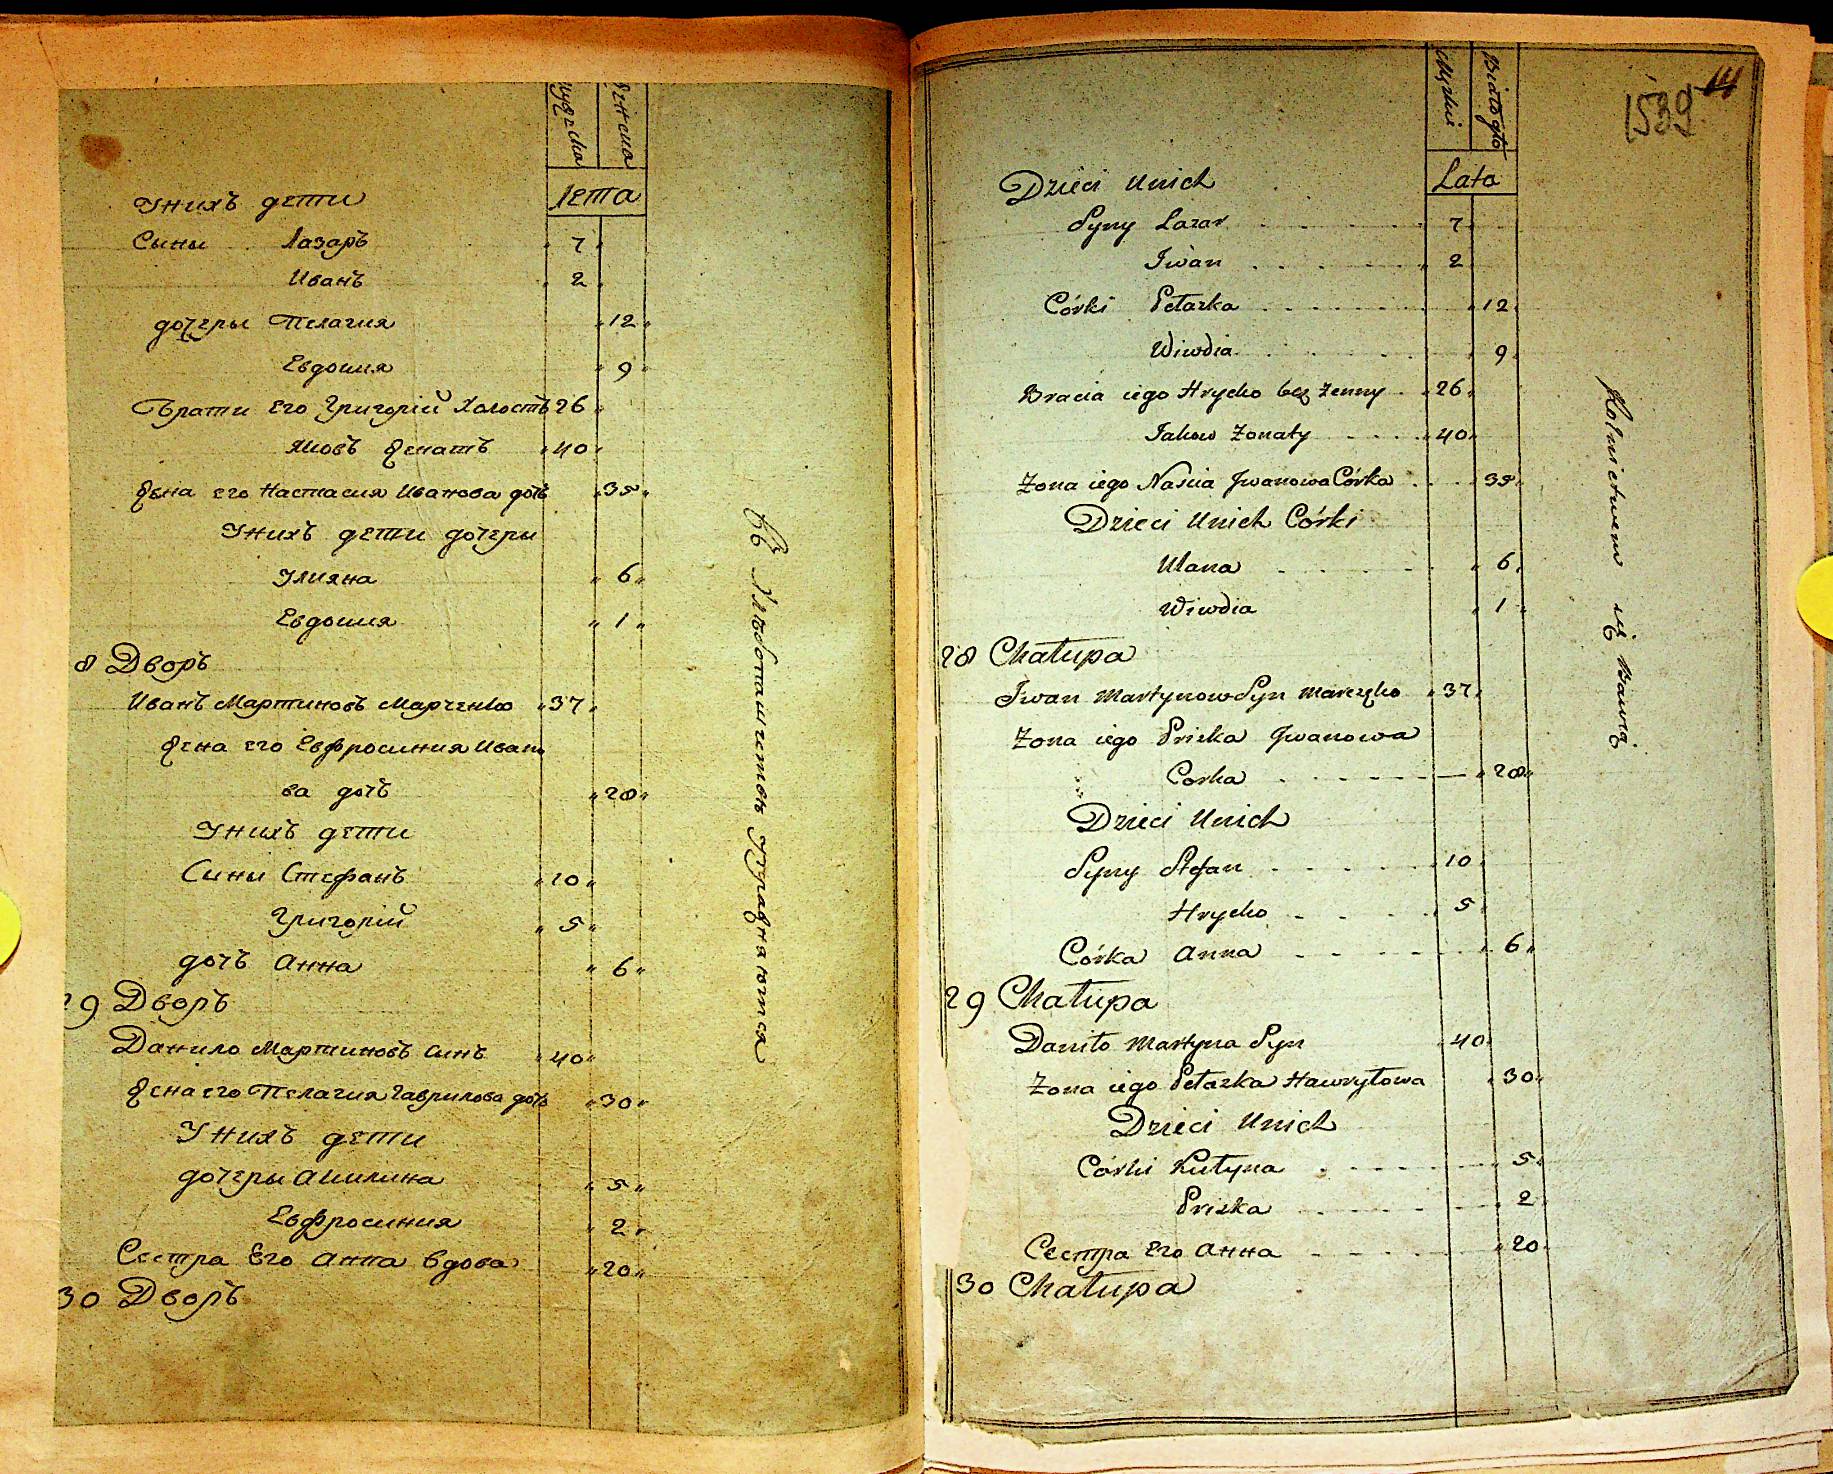 мужеска женска
Лета
У нихъ дети
Сыны Лазарь 7
Иванъ 2
дочеры Пелагия 12
Евдокия 9
Брати Его Григорій Холостъ 26
Яковъ женатъ 40
жена его Настасия Иванова дочь 35
У нихъ дети дочеры
Улияна 6
Евдокия 1
8 Дворъ
Иванъ Мартиновъ Марченко 37
жена его Евфросиния Ивано
ва дочь 28
У нихъ дети
Сини Стефанъ 10
Григорій 5
дочь Анна 6
29 Дворъ
Данило Мартиновъ синъ 40
жена его Пелагия Гаврилова дочь 30
У нихъ дети
дочеры Акилина 5
Евфросиния 2
Сестра Его Анна вдова 20
30 Дворъ
Въ Хлебопашестве Упражняются
1539 14
Męzkie
Lata
Dzieci Unich
Syny Lazar 7
Iwan 2
Córki Petazka 12
Wiwdia 9
Bracia iego Hrycko bez Zenny 26
Jakow Zonaty 40
Zona iego Naścia Jwanowa Córka 35
Dzieci Unich Córki
Ulana 6
Wiwdia 1
28 Chałupa
Iwan Martynow Syn Marczęko 37
Zona iego Priska Jwanowa
Corka 28
Dzieci Unich
Syny Stefan 10
Hrycko 5
Córka Anna 6
29 Chałupa
Daniło Martyna Syn 40
Zona iego Petazka Hawryłowa 30
Dzieci Unich
Córki Kułyna 5
Priska 2
Сестра Его Анна 20
30 Chałupa
Rolnictwem się Bawią